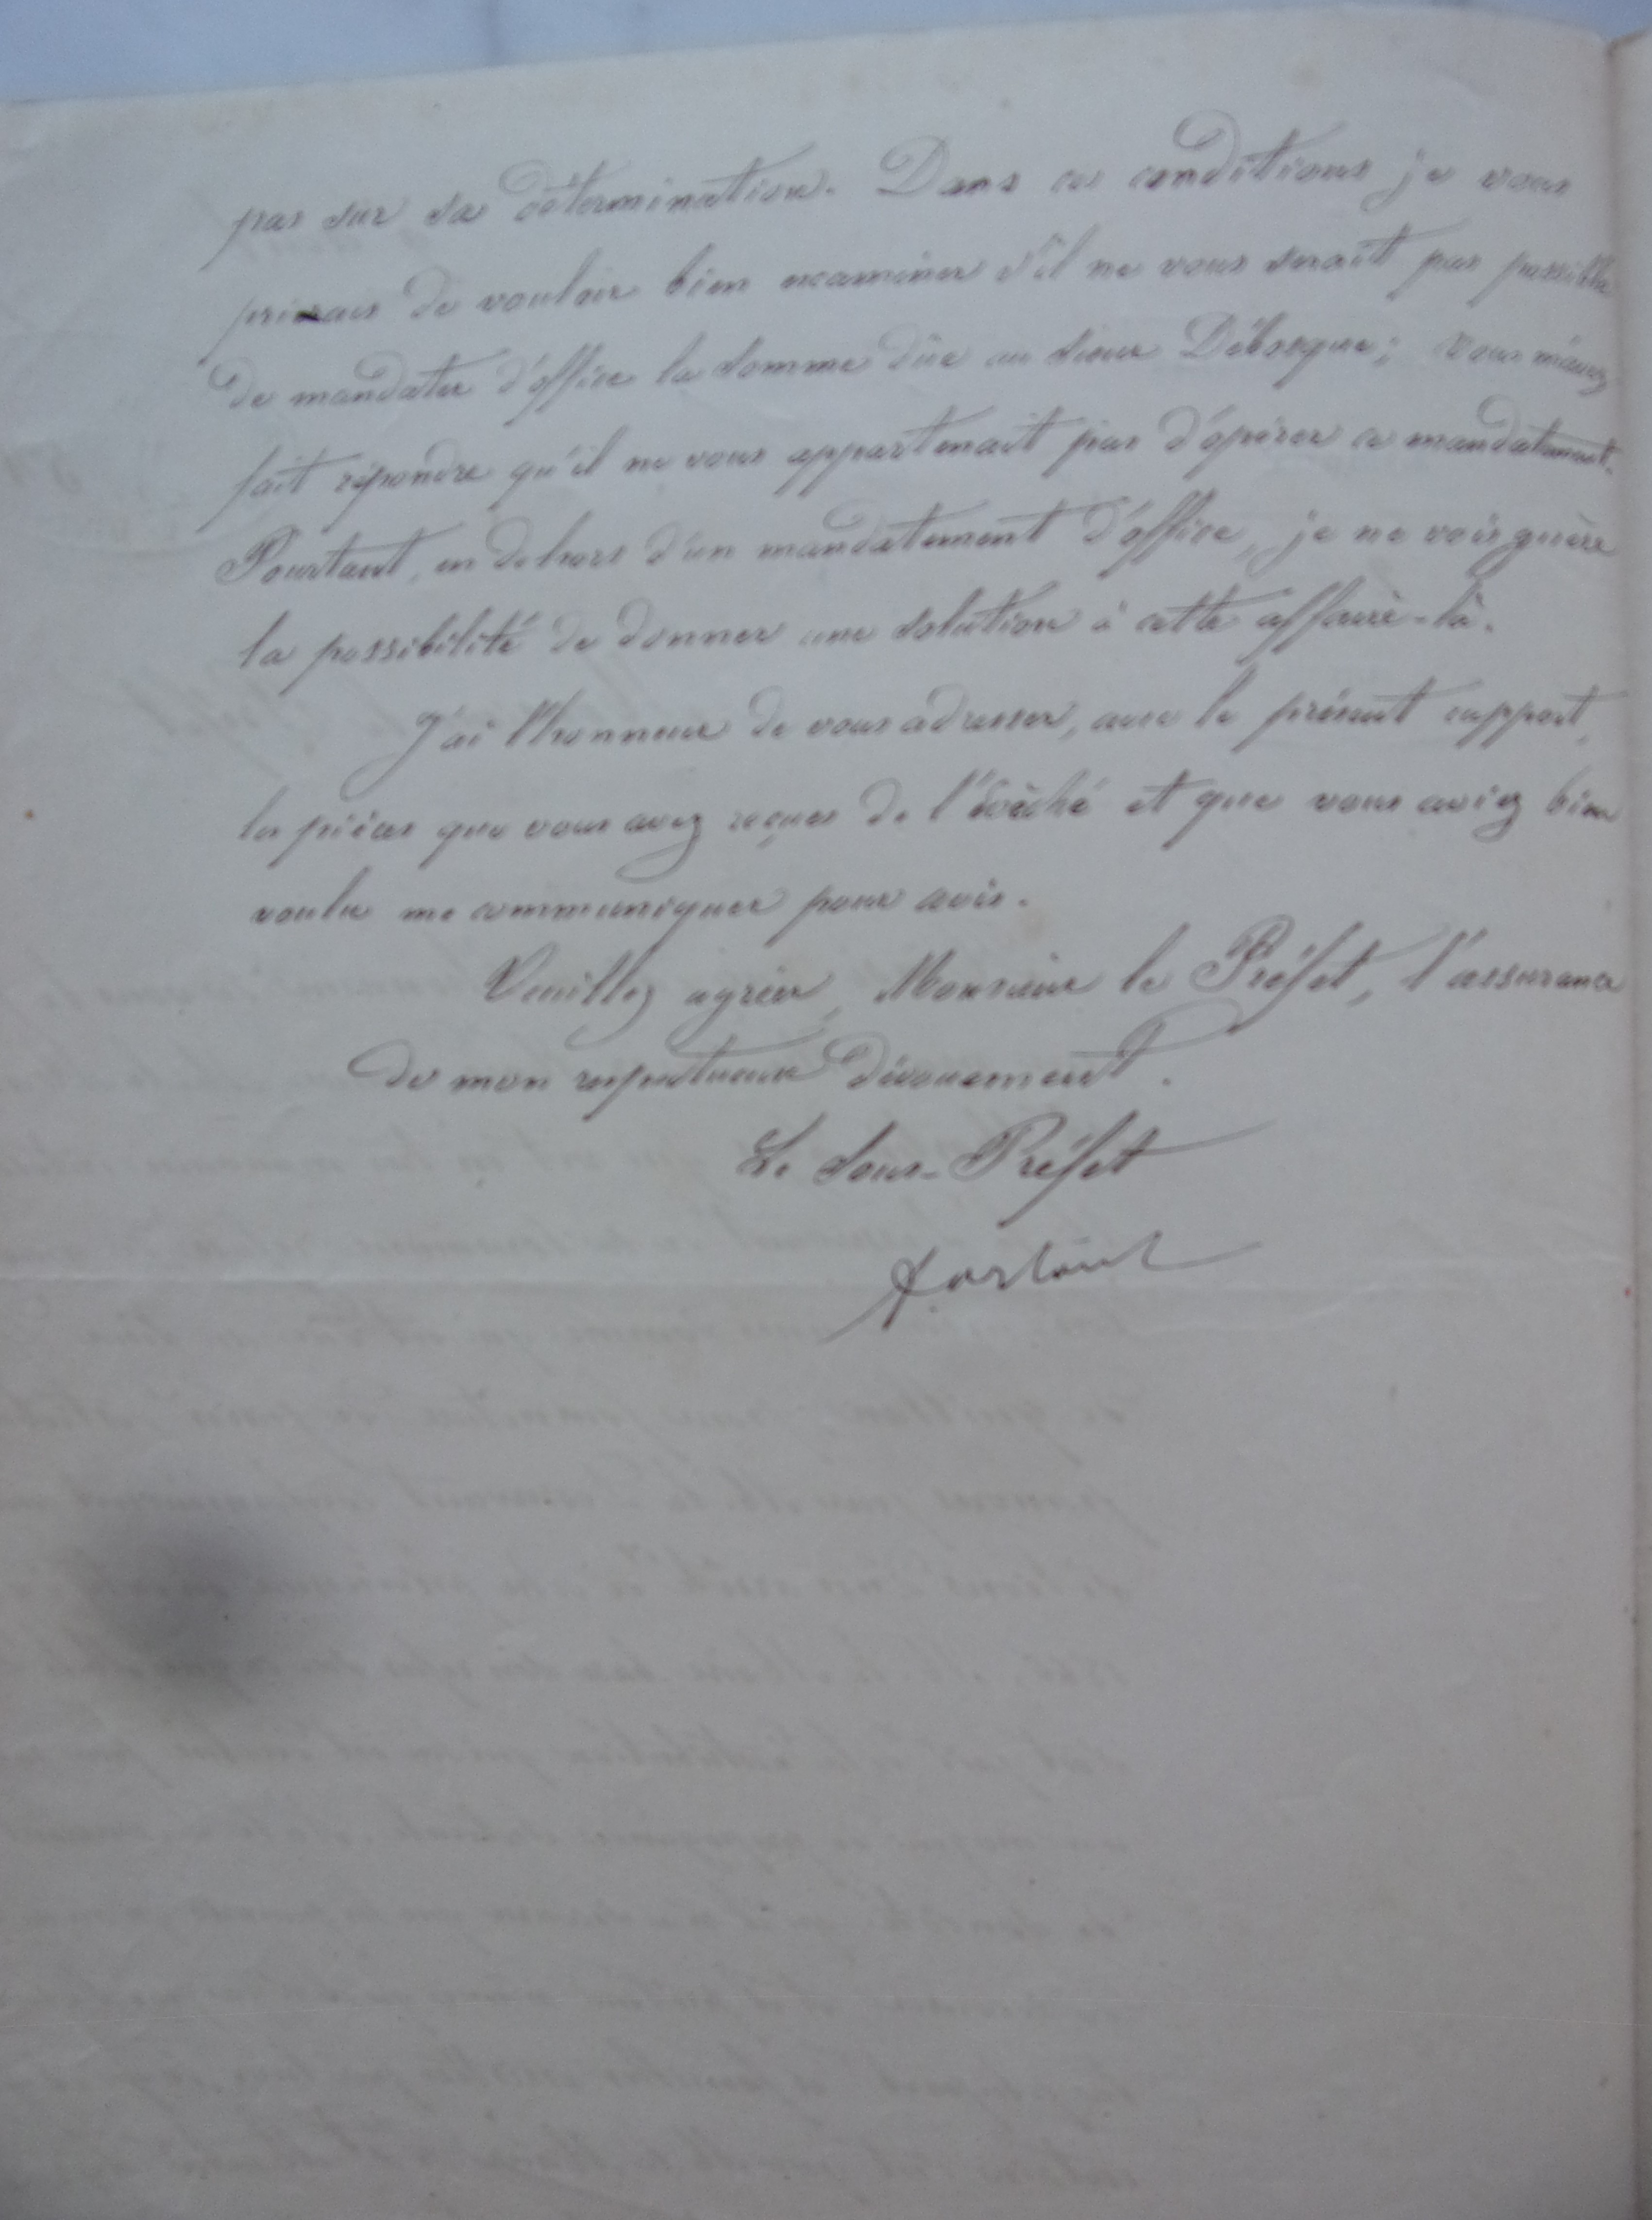 pas sur sa détermination. Dans ces conditions je vous
priais de vouloir bien examiner s'il ne vous serait pas possible
de mandater d'office la somme dûe au sieur Débosque; vous m'avez
fait répondre qu'il ne vous appartenait pas d'opérer ce mandatement.
Pourtant, en dehors d'un mandatement d'office, je ne vois guère
la possibilité de donner une solution à cette affaire-là.
J'ai l'honneur de vous adresser, avec le présent rapport,
les pièces que vous avez reçues de l'Évêché et que vous aviez bien
voulu me communiquer pour avis.
Veuillez agréer, Monsieur le Préfet, l'assurance
de mon respectueux dévouement.
Le Sous-Préfet